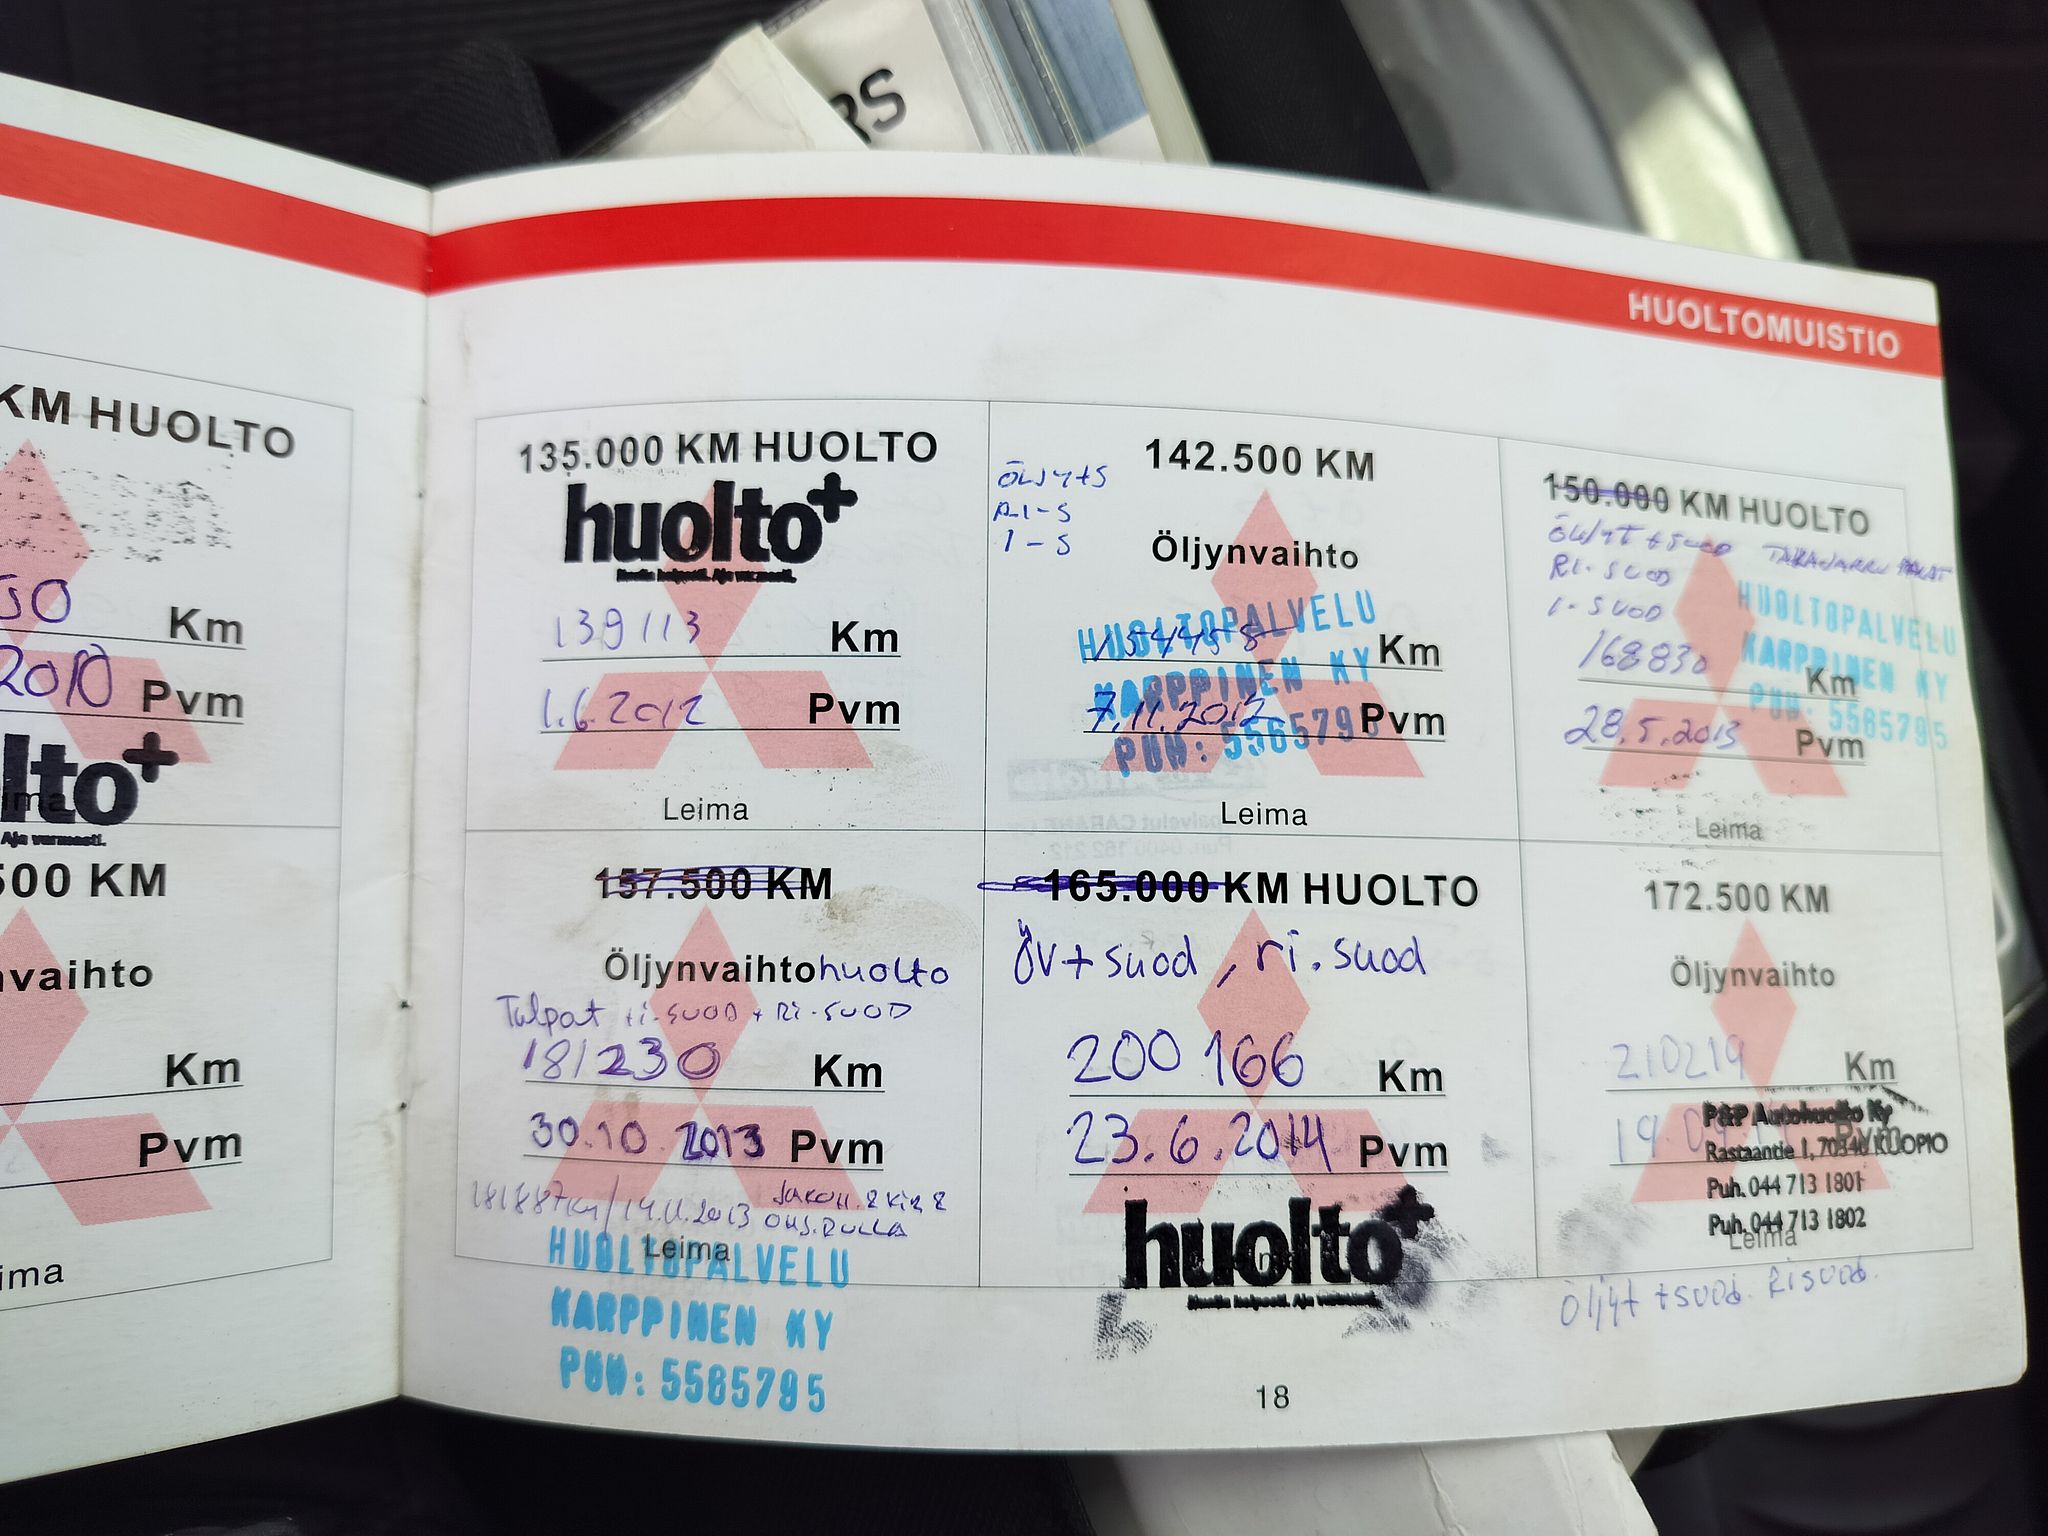 RS
HUOLTOMUISTIO
KM HUOLTO
50 Km
2010 Pvm
lto+
Aja varmasti.
500 KM
nvaihto
Km
Pvm
ima
135.000 KM HUOLTO
huolto+
139113 Km
1.6.2012 Pvm
Leima
142.500 KM
ÖLJYT+S
RI-S
I-S
Öljynvaihto
HUOLTOPALVELU
Km
KARPPINEN KY
7.11.2012 Pvm
PUH: 5565795
Leima
150.000 KM HUOLTO
ÖLJYT + SUOD TAKAJARRU PALAT
RI-SUOD
I-SUOD
HUOLTOPALVELU
168830 Km
KARPPINEN KY
28.5.2013 Pvm
PUH: 5565795
Leima
157.500 KM
Öljynvaihto huolto
Tulpat + i-SUOD + Ri-SUOD
181230 Km
30.10.2013 Pvm
181887km/14.11.2013
OHJ.RULLA
Leima
HUOLTOPALVELU
KARPPINEN KY
PUH: 5565795
165.000 KM HUOLTO
öv+ suod, ri.suod
200 166 Km
23.6.2014 Pvm
huolto+
172.500 KM
Öljynvaihto
210219 Km
19 Pvm
P&P Autohuolto Ky
Rastaantie 1, 70340 KUOPIO
Puh. 044 713 1801
Puh. 044 713 1802
Leima
Öljyt + suod. Ri suod.
18